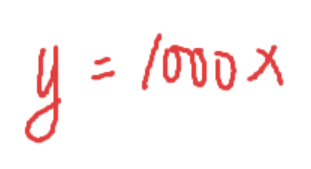 y = 1000x